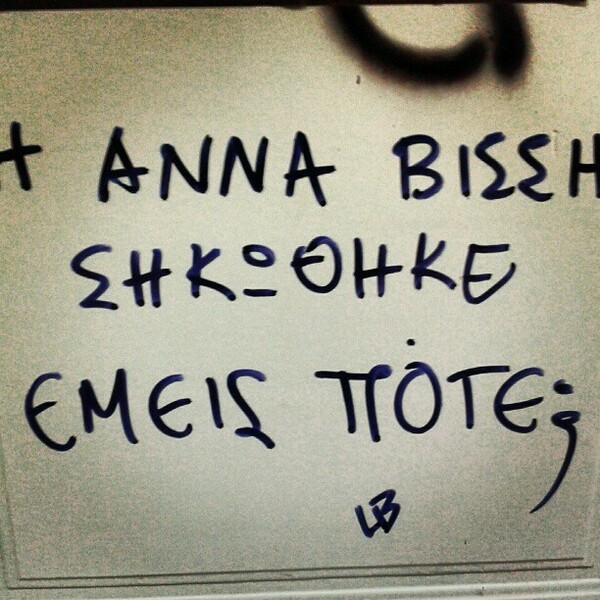 Η ΑΝΝΑ ΒΙΣΣΗ
ΣΗΚΩΘΗΚΕ
ΕΜΕΙΣ ΠΟΤΕ;
LB